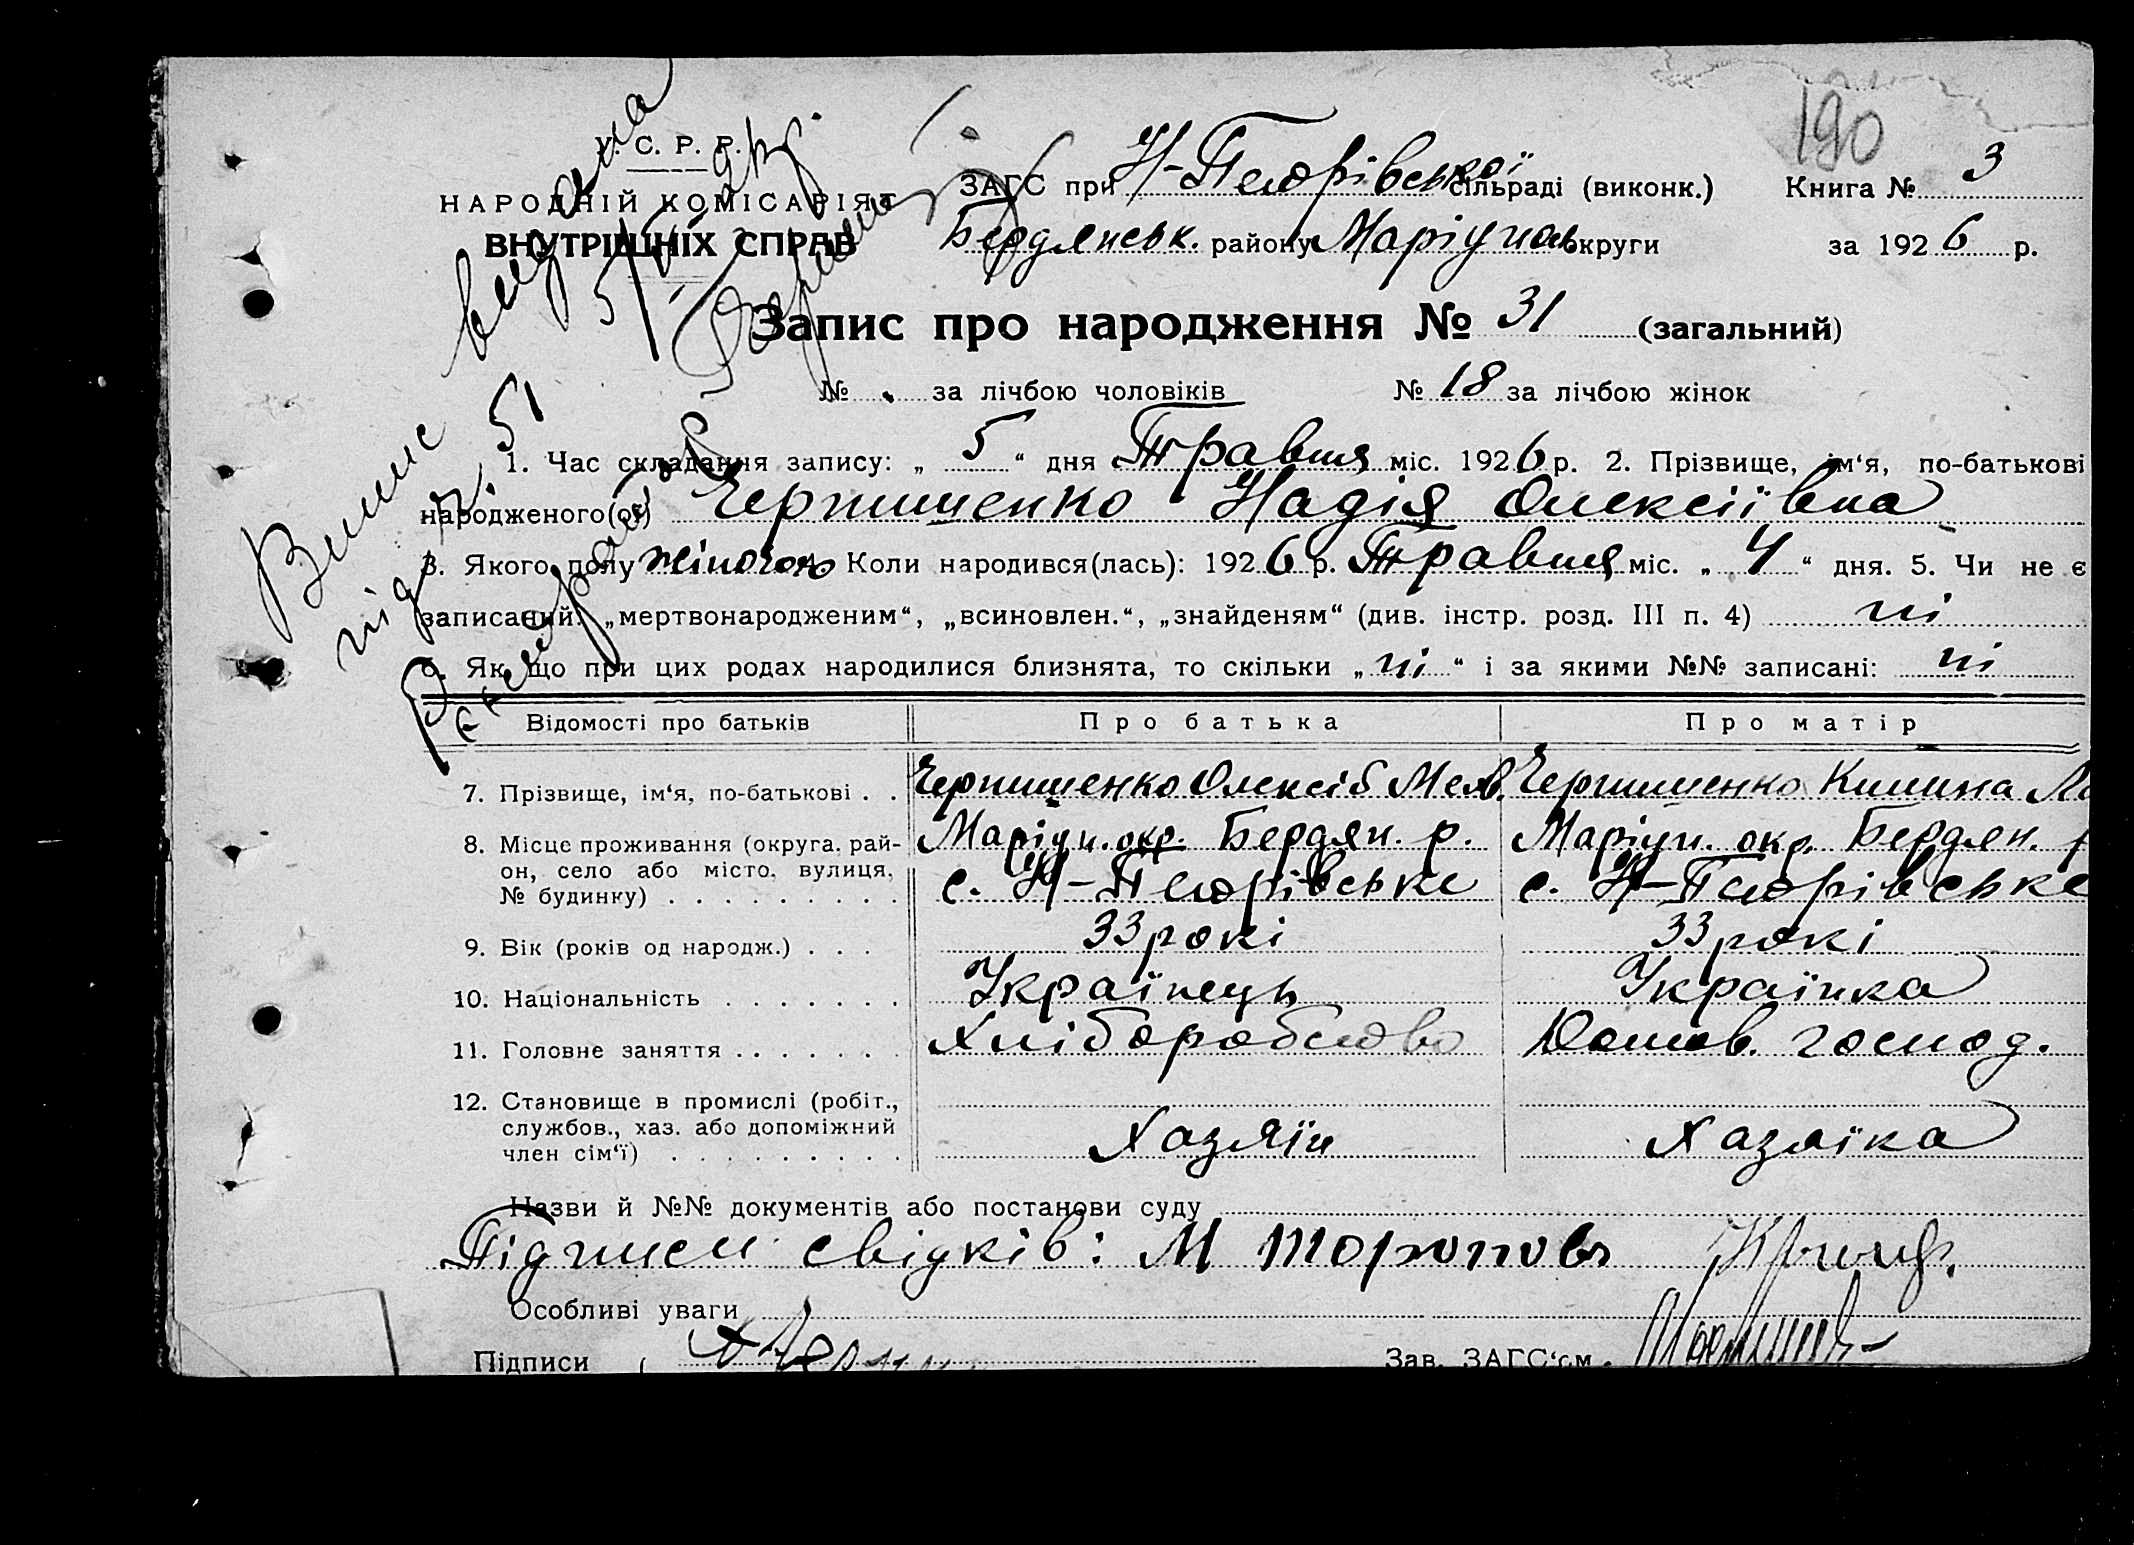 190
У. С. Р. Р.
НАРОДНІЙ КОМІСАРІЯТ
ВНУТРІШНІХ СПРАВ
ЗАГС при Н-Петрівської сільраді (виконк.) Книга № 3
Бердянськ. району Маріупольс округи за 1926 р.
Запис про народження № 31 (загальний)
№ за лічбою чоловіків № 18 за лічбою жінок
1. Час складання запису: „ 5 “ дня Травня міс. 1926 р. 2. Прізвище, ім‘я, по-батькові
народженого(ої) Чернишенко Надія Олексіївна
3. Якого полу жіночою 4. Коли народився(лась): 1926 р. Травня міс. „ 4 “ дня. 5. Чи не є
записаний: „мертвонародженим“, „всиновлен.“, „знайденям“ (див. інстр. розд. III п. 4) ні
6. Як що при цих родах народилися близнята, то скільки „ ні “ і за якими №№ записані: ні
Відомості про батьків Про батька Про матір
7. Прізвище, ім‘я, по-батькові . . Чернишенко Олексій Чернишенко Килина
8. Місце проживання (округа, рай- Маріуп. окр. Бердян. р. Маріуп. окр. Бердян. р
он, село або місто, вулиця, с. Н-Петрівське с. Н-Петрівське
№ будинку) . . . . . . . . .
9. Вік (років од народж.) . . . 33 рокі 33 рокі
10. Національність . . . . . . . Українець Українка
11. Головне заняття . . . . . . Хліборобство Домов. господ.
12. Становище в промислі (робіт.,
службов., хаз. або допоміжний Хазяїн Хазяїка
член сім‘ї) . . . . . . . . .
Назви й №№ документів або постанови суду
Підписи свідків: М Тороповъ
Особливі уваги
Підписи Зав. ЗАГС‘ом
Випис видана
під ч. 51